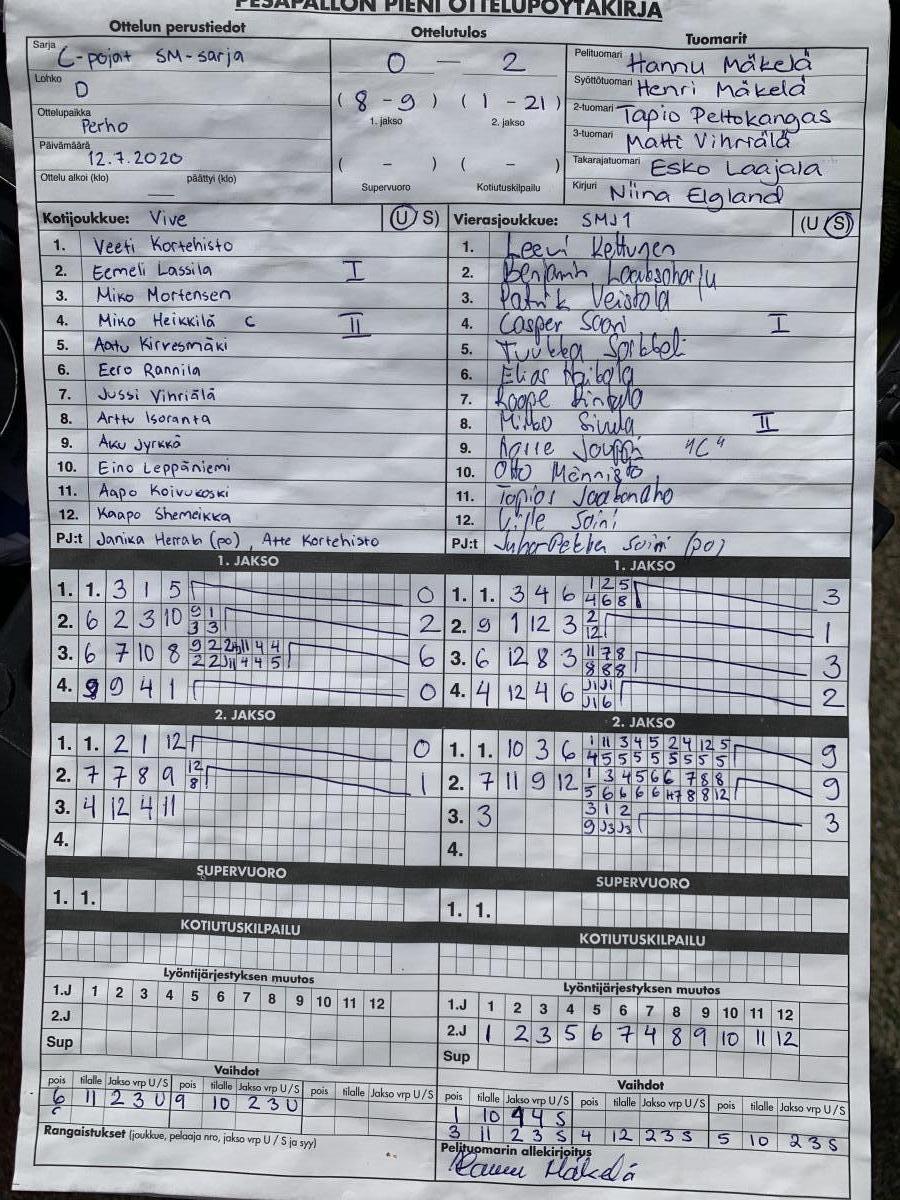 PESÄPALLON PIENI OTTELUPÖYTÄKIRJA
Ottelun perustiedot
Ottelutulos
Tuomarit
Sarja C-pojat SM-sarja
Lohko D
Ottelupaikka Perho
Päivämäärä 12.7.2020
Ottelu alkoi (klo) — päättyi (klo)
0 — 2
( 8 - 9 ) ( 1 - 21 )
1. jakso 2. jakso
( - ) ( - )
Supervuoro Kotiutuskilpailu
Pelituomari Hannu Mäkelä
Syöttötuomari Henri Mäkelä
2-tuomari Tapio Peltokangas
3-tuomari Matti Vihriälä
Takarajatuomari Esko Laajala
Kirjuri Niina Elgland
Kotijoukkue: Vive (U S)
1. Veeti Kortehisto
2. Eemeli Lassila I
3. Miko Mortensen
4. Miko Heikkilä C II
5. Aatu Kirvesmäki
6. Eero Rannila
7. Jussi Vihriälä
8. Arttu Isoranta
9. Aku Jyrkkä
10. Eino Leppäniemi
11. Aapo Koivukoski
12. Kaapo Shemeikka
PJ:t Janika Herrala (po), Atte Kortehisto
Vierasjoukkue: SMJ1 (U S)
1. Leevi Kettunen
2. Benjamin
3. Patrik Veistola
4. Casper Saari I
5. Tuukka
6. Elias
7. Roope Rintala
8. Sivula II
9. Jouppi "C"
10. Otto Männistö
11.
12. Ville Soini
PJ:t Juha-Pekka Soini (po)
1. JAKSO
1. 1. 3 1 5 0
2. 6 2 3 10 9 1 2
3 3
3. 6 7 10 8 6
4. 9 9 4 1 0
2. JAKSO
1. 1. 2 1 12 0
2. 7 7 8 9 12 1
8
3. 4 12 4 11
4.
SUPERVUORO
1. 1.
KOTIUTUSKILPAILU
Lyöntijärjestyksen muutos
1.J 1 2 3 4 5 6 7 8 9 10 11 12
2.J
Sup
Vaihdot
pois tilalle Jakso vrp U/S pois tilalle Jakso vrp U/S pois tilalle Jakso vrp U/S
6 11 2 3 U 9 10 2 3 U
Rangaistukset (joukkue, pelaaja nro, jakso vrp U / S ja syy)
1. JAKSO
1. 1. 3 4 6 1 2 5 3
4 6 8
2. 9 1 12 3 2 1
12
3. 6 12 8 3 11 7 8 3
8 8 8
4. 4 12 4 6 J1 J1 2
J1 6
2. JAKSO
1. 1. 10 3 6 1 11 3 4 5 2 4 12 5 9
4 5 5 5 5 5 5 5 5
2. 7 11 9 12 1 3 4 5 6 6 7 8 8 9
5 6 6 6 6 H7 8 8 12
3. 3 3 1 2 3
9 J3 J3
4.
SUPERVUORO
1. 1.
KOTIUTUSKILPAILU
Lyöntijärjestyksen muutos
1.J 1 2 3 4 5 6 7 8 9 10 11 12
2.J 1 2 3 5 6 7 4 8 9 10 11 12
Sup
Vaihdot
pois tilalle Jakso vrp U/S pois tilalle Jakso vrp U/S pois tilalle Jakso vrp U/S
1 10 4 S
3 11 2 3 S 4 12 2 3 S 5 10 2 3 S
Pelituomarin allekirjoitus
Hannu Mäkelä